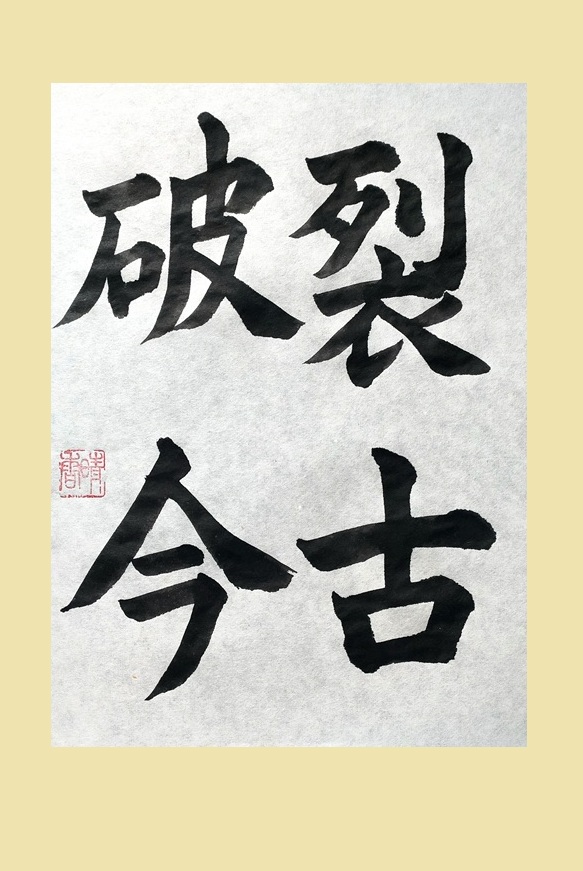 裂古
破今